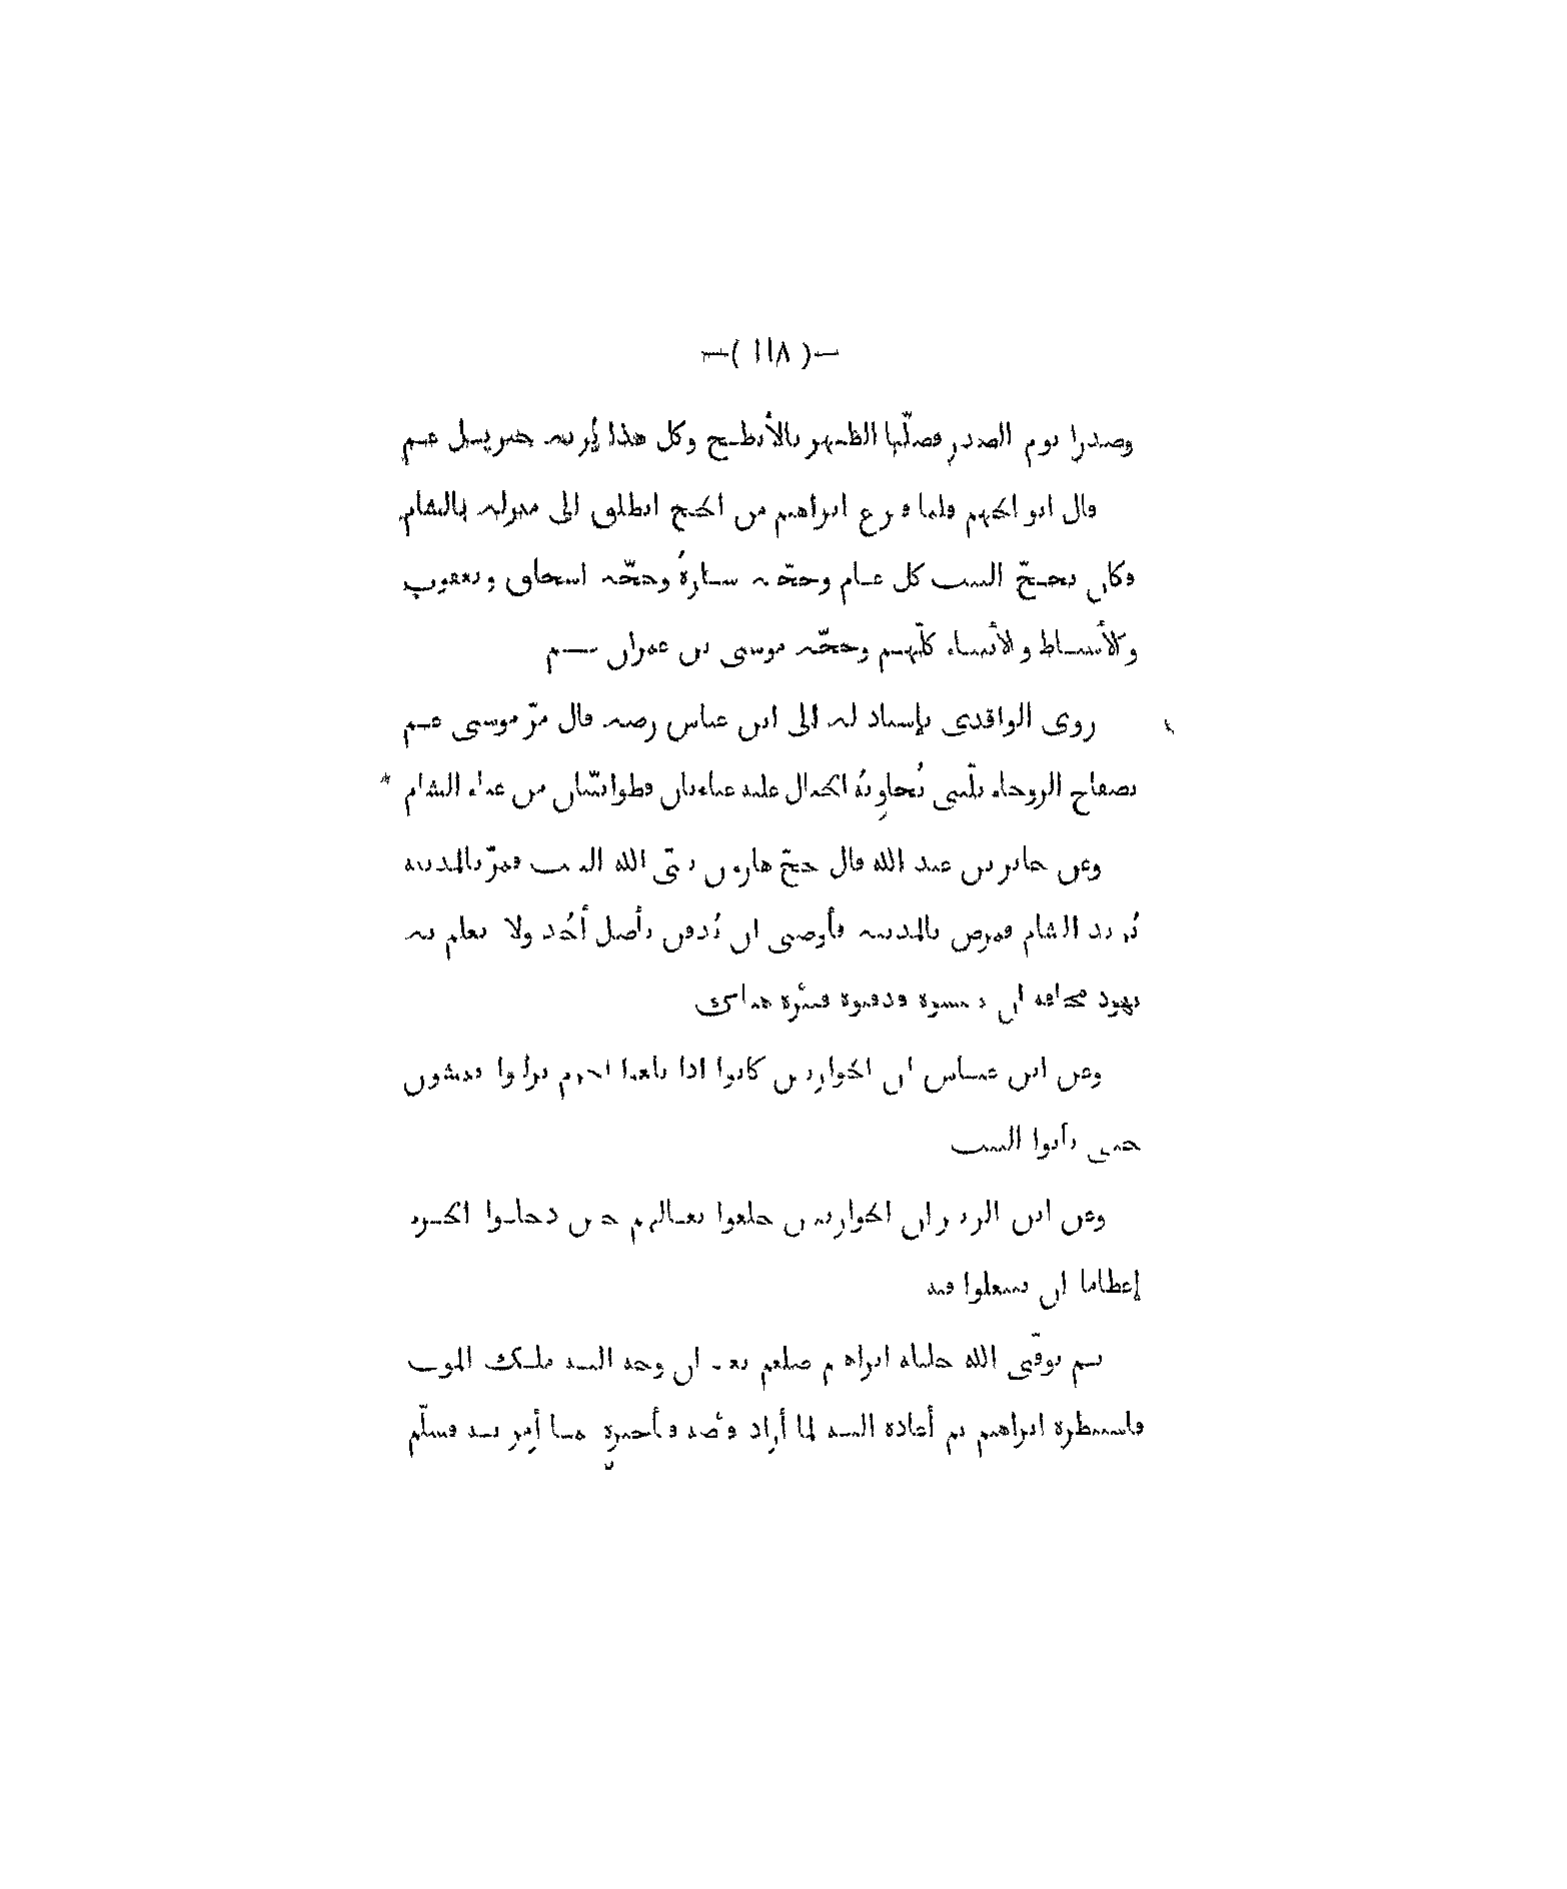 —( ١١٨ )—
وصدرا يوم الصدر فصلّيا الظهر بالأبطح وكل هذا يُريه جبريل عم
قال ابو الجهم فلما فرغ ابراهيم من الحج انطلق الى منزله بالشام
فكان يحجّ البيت كل عام وحجّته سارةُ وحجّه اسحاق ويعقوب
والأسباط والأنبياء كلّهم وحجّه موسى بن عمران عم
روى الواقدى بإسناد له الى ابن عباس رضه قال مرّ موسى عم
بصفاح الروحاء يلّبى تُجاوِبُهُ الجبال عليه عباءتان قطوانيّتان من عباء الشام *
وعن جابر بن عبد الله قال حجّ هارون نبّى الله البيت فمرّ بالمدينة
يُريد الشام فمرض بالمدينة فأوصى ان يُدفن بأصل أُحُد ولا يعلم به
يهود مخافة ان ينبشوه فدفنوه فقبره هناك
وعن ابن عباس ان الحواريين كانوا اذا بلغوا الحرم نزلوا يمشون
حتى يأتوا البيت
وعن ابن الزبير ان الحواريين خلعوا نعالهم حين دخلوا الحرم
إعظاما ان ينتعلوا فيه
ثم توفّى الله خليله ابراهيم صلعم بعد ان وجه اليه ملك الموت
فاستنظره ابراهيم ثم أعاده اليه لما أراد قبضه فأخبره بما أُمِر به فسلّم